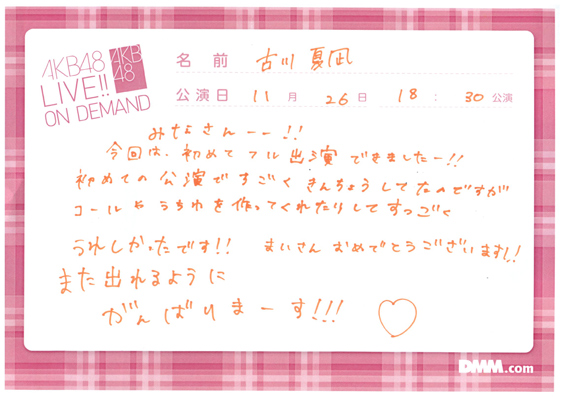 AKB48
LIVE!!
ON DEMAND
AKB
48
名前 古川夏凪
公演日 11月26日 18:30公演
みなさんーー!!
今回は、初めてフル出演できましたー!!
初めての公演ですごくきんちょうしてたのですが
コールやうちわを作ってくれたりしてすっごく
うれしかったです!! まいさんおめでとうございます!!
また出れるように
がんばりまーす!!!
DMM.com